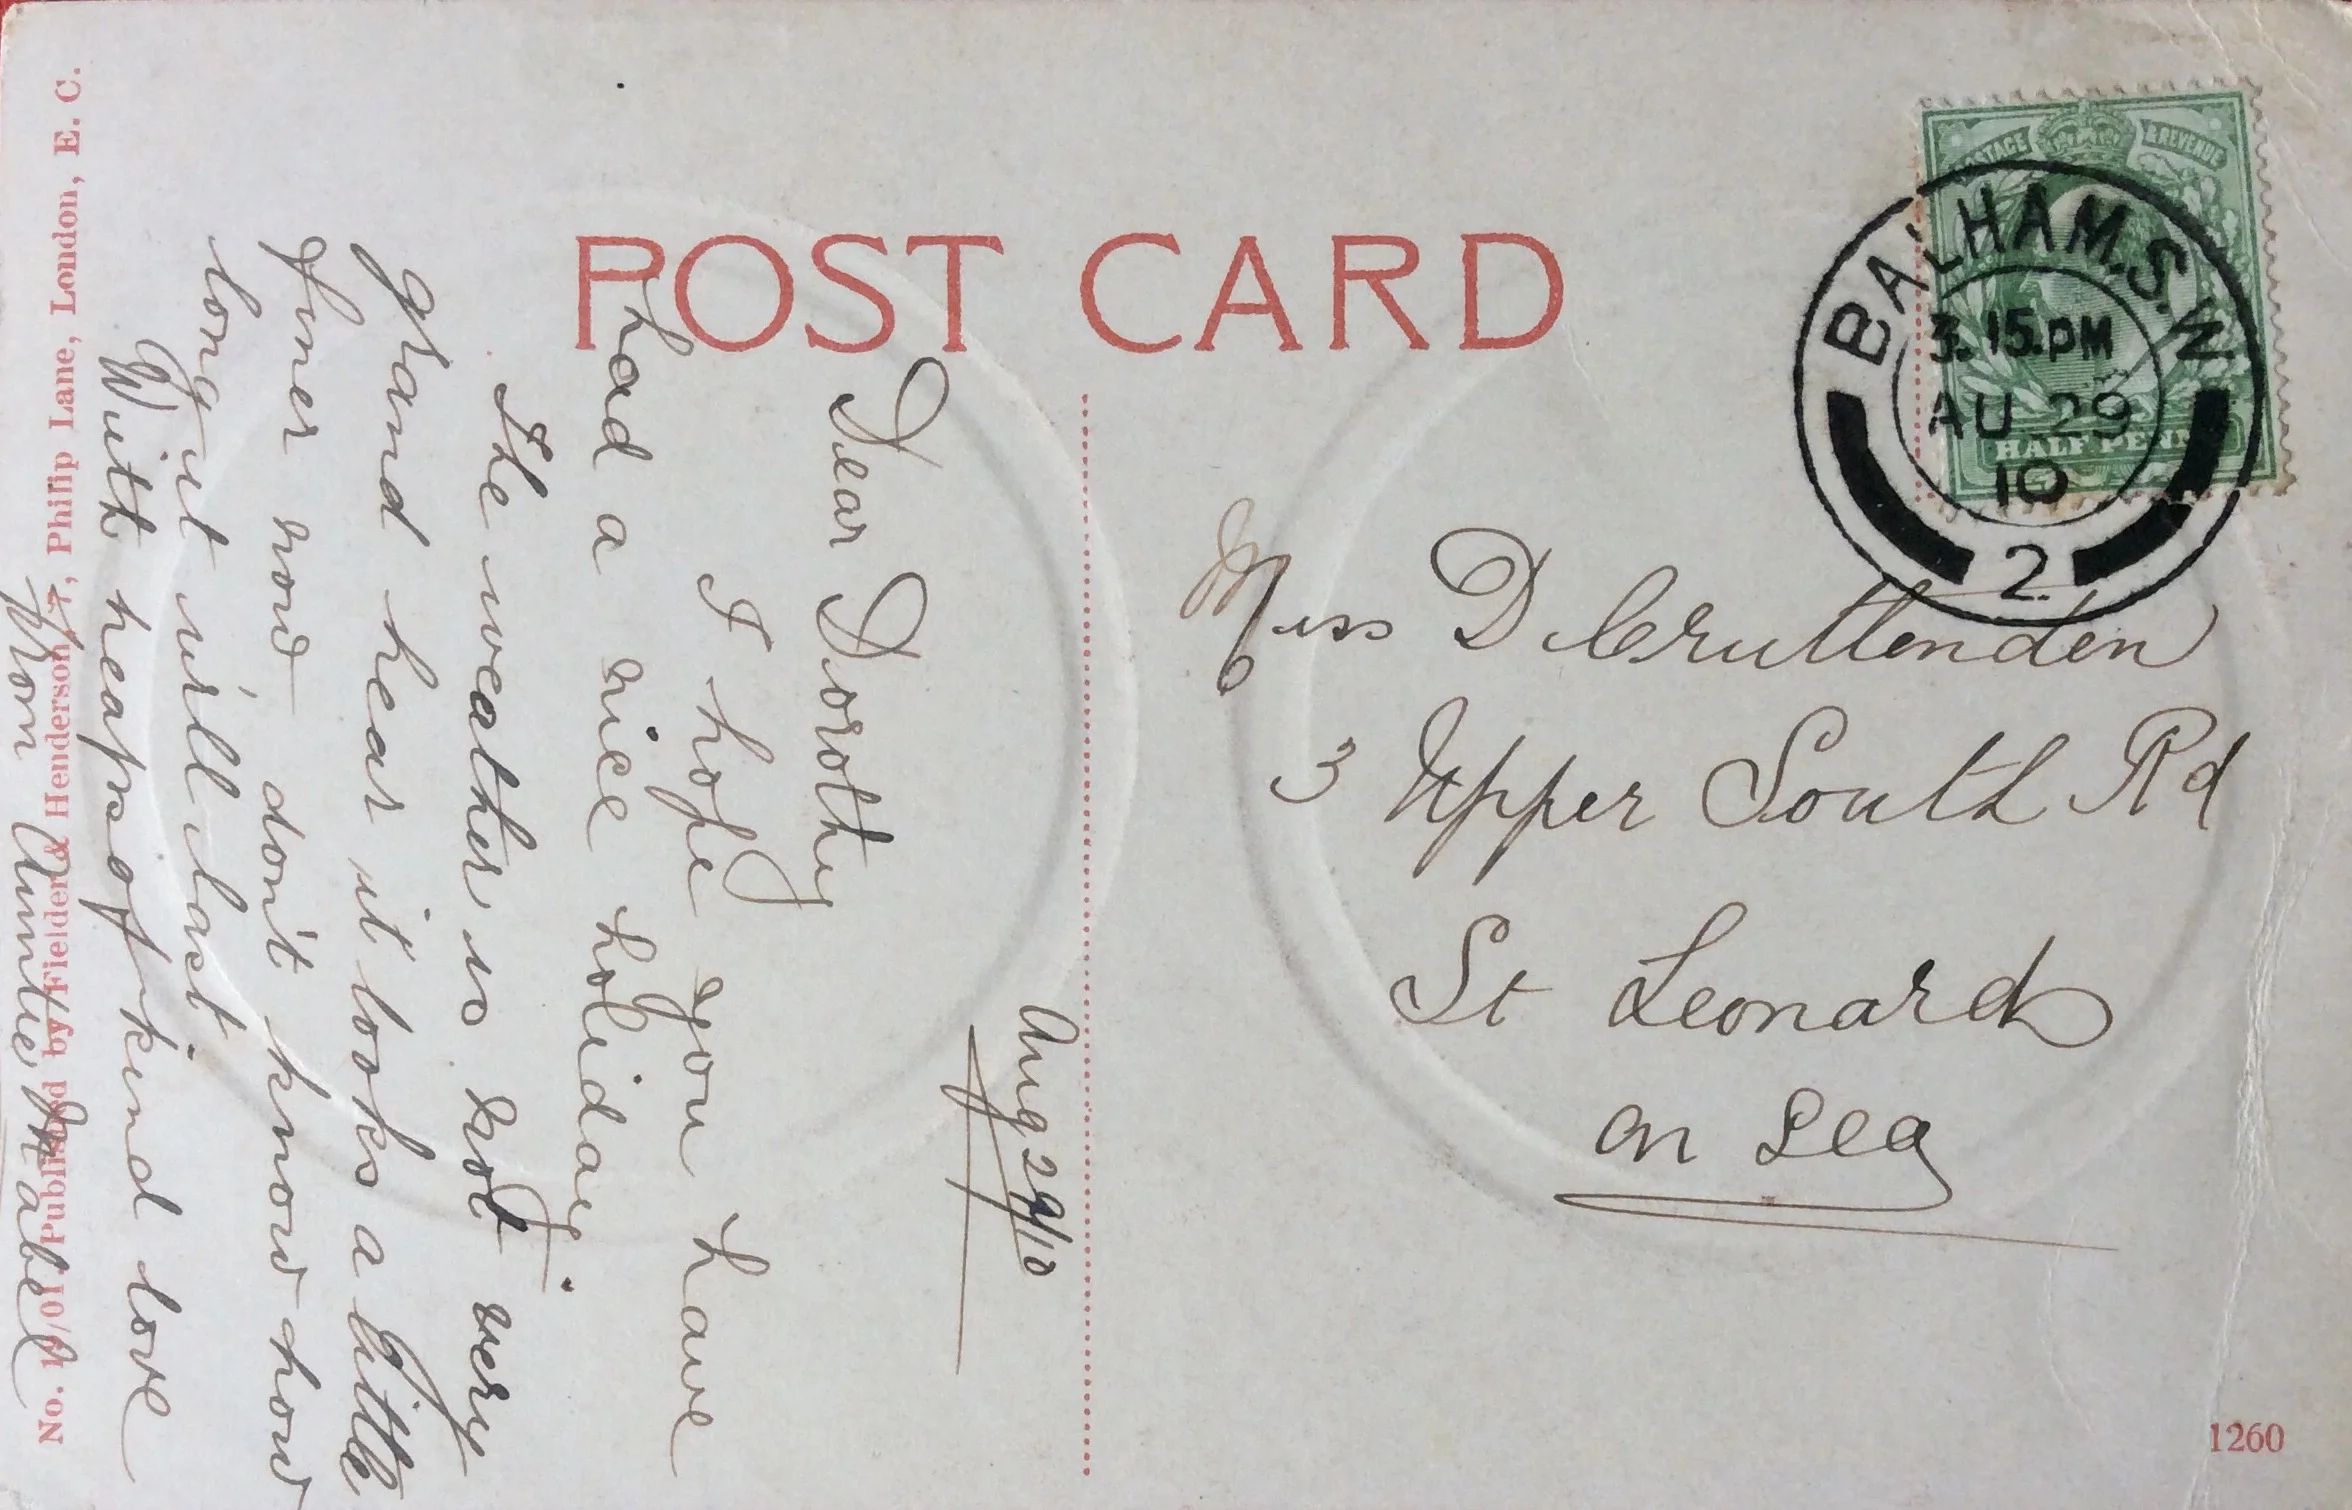 POST CARD
POSTAGE & REVENUE
HALFPENNY
BALHAM.S.W.
3.15.PM
AU 29
10
2
Miss D Cruttenden
3 Upper South Rd
St Leonard
on Sea
1260
Aug 29/10
Dear Dorothy
I hope you have
had a nice holiday.
The weather is not very
grand hear it looks a little
finer now don't know how
long it will last
With heaps of kind love
from Auntie Mabel
Published by Fielder & Henderson, 7, Philip Lane, London, E. C.